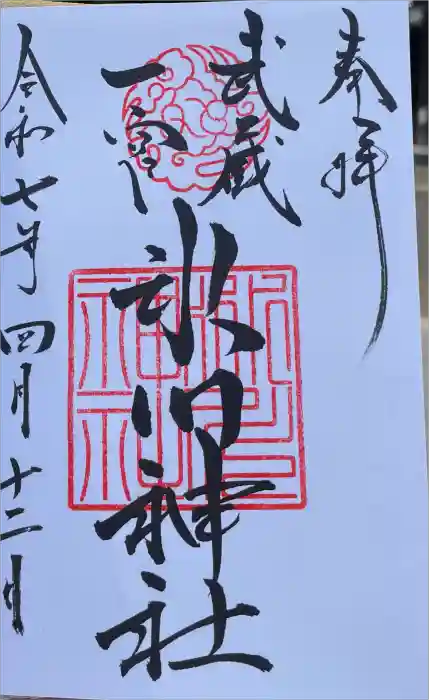 奉拝
武蔵
一宮
氷川神社
令和七年四月十二日
氷川神社